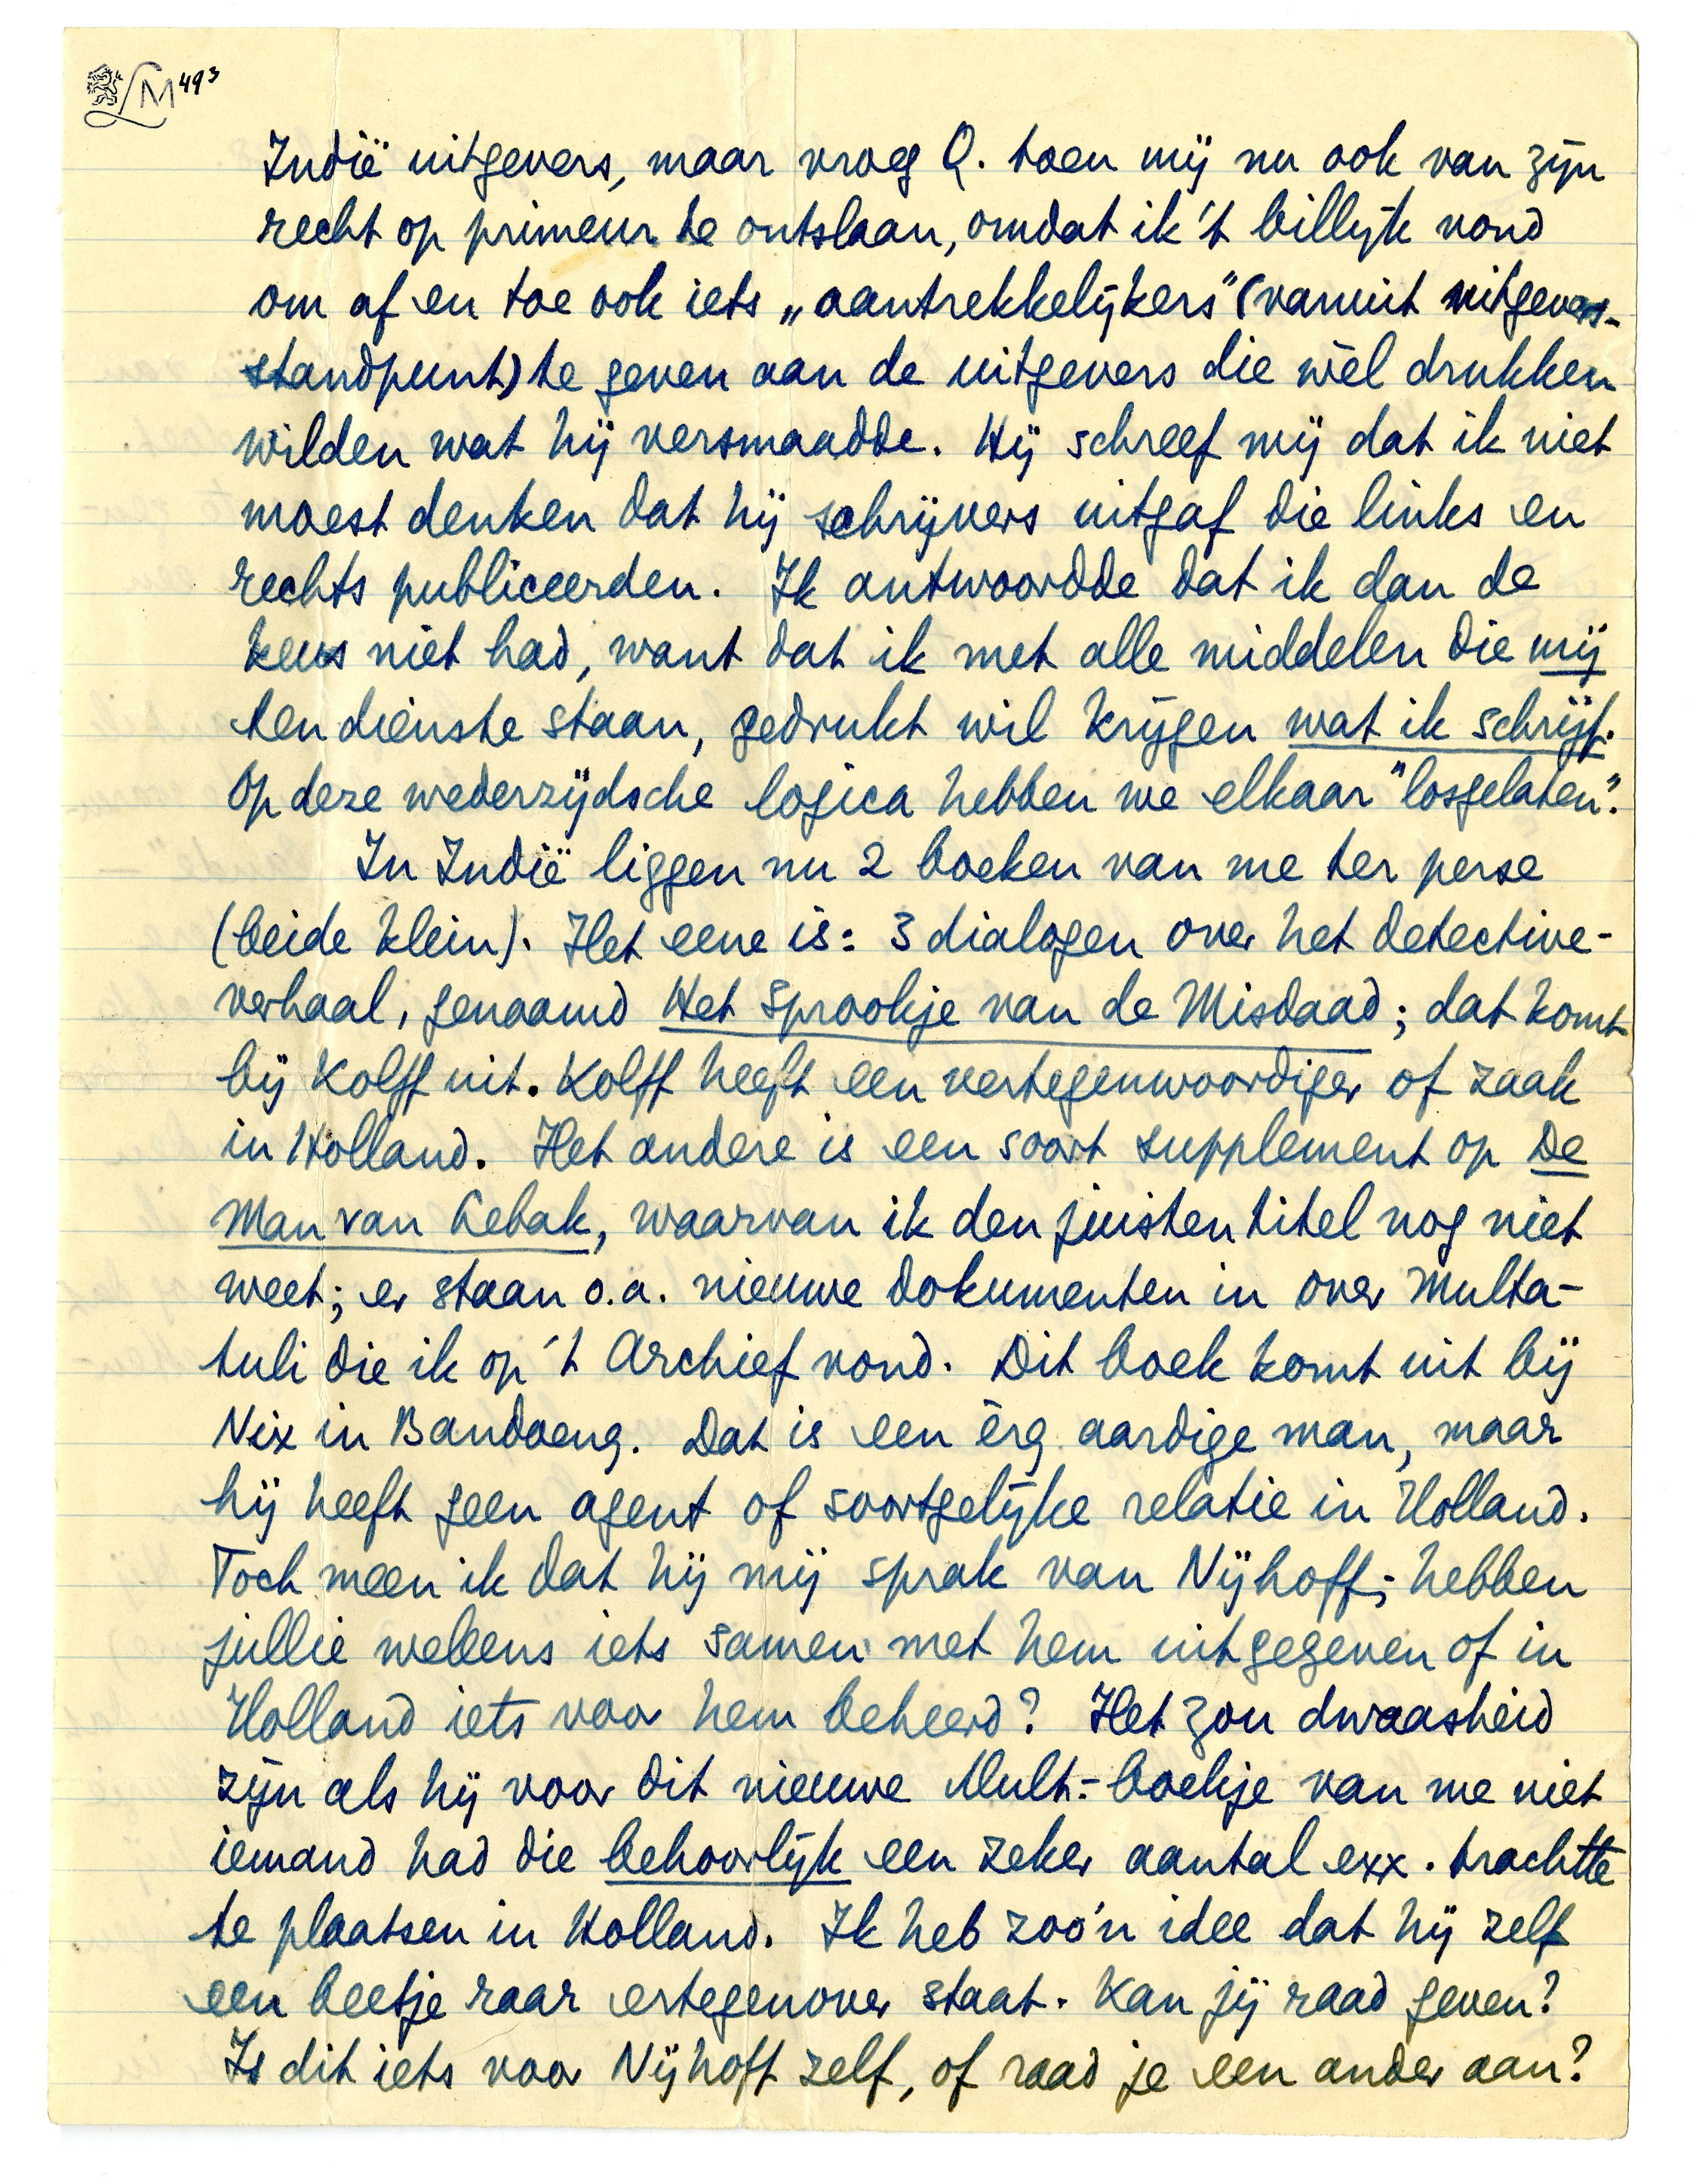 LM 49³
Indië uitgevers, maar vroeg Q. toen mij nu ook van zijn
recht op primeur te ontslaan, omdat ik 't billijk vond
om af en toe ook iets „aantrekkelijkers" (vanuit uitgevers-
standpunt) te geven aan de uitgevers die wèl drukken
wilden wat hij versmaadde. Hij schreef mij dat ik niet
moest denken dat hij schrijvers uitgaf die links en
rechts publiceerden. Ik antwoordde dat ik dan de
keus niet had, want dat ik met alle middelen die mij
ten dienste staan, gedrukt wil krijgen wat ik schrijf.
Op deze wederzijdsche logica hebben we elkaar "losgelaten".
In Indië liggen nu 2 boeken van me ter perse
(beide klein). Het eene is: 3 dialogen over het detective-
verhaal, genaamd Het Sprookje van de Misdaad; dat komt
bij Kolff uit. Kolff heeft een vertegenwoordiger of zaak
in Holland. Het andere is een soort supplement op De
Man van Lebak, waarvan ik den juisten titel nog niet
weet; er staan o.a. nieuwe dokumenten in over Multa-
tuli die ik op 't Archief vond. Dit boek komt uit bij
Nix in Bandoeng. Dat is een èrg aardige man, maar
hij heeft geen agent of soortgelijke relatie in Holland.
Toch meen ik dat hij mij sprak van Nijhoff; hebben
jullie weleens iets samen met hem uitgegeven of in
Holland iets voor hem beheerd? Het zou dwaasheid
zijn als hij voor dit nieuwe Mult.-boekje van me niet
iemand had die behoorlijk een zeker aantal exx. trachtte
te plaatsen in Holland. Ik heb zoo'n idee dat hij zelf
een beetje raar ertegenover staat. Kan jij raad geven?
Is dit iets voor Nijhoff zelf, of raad je een ander aan?